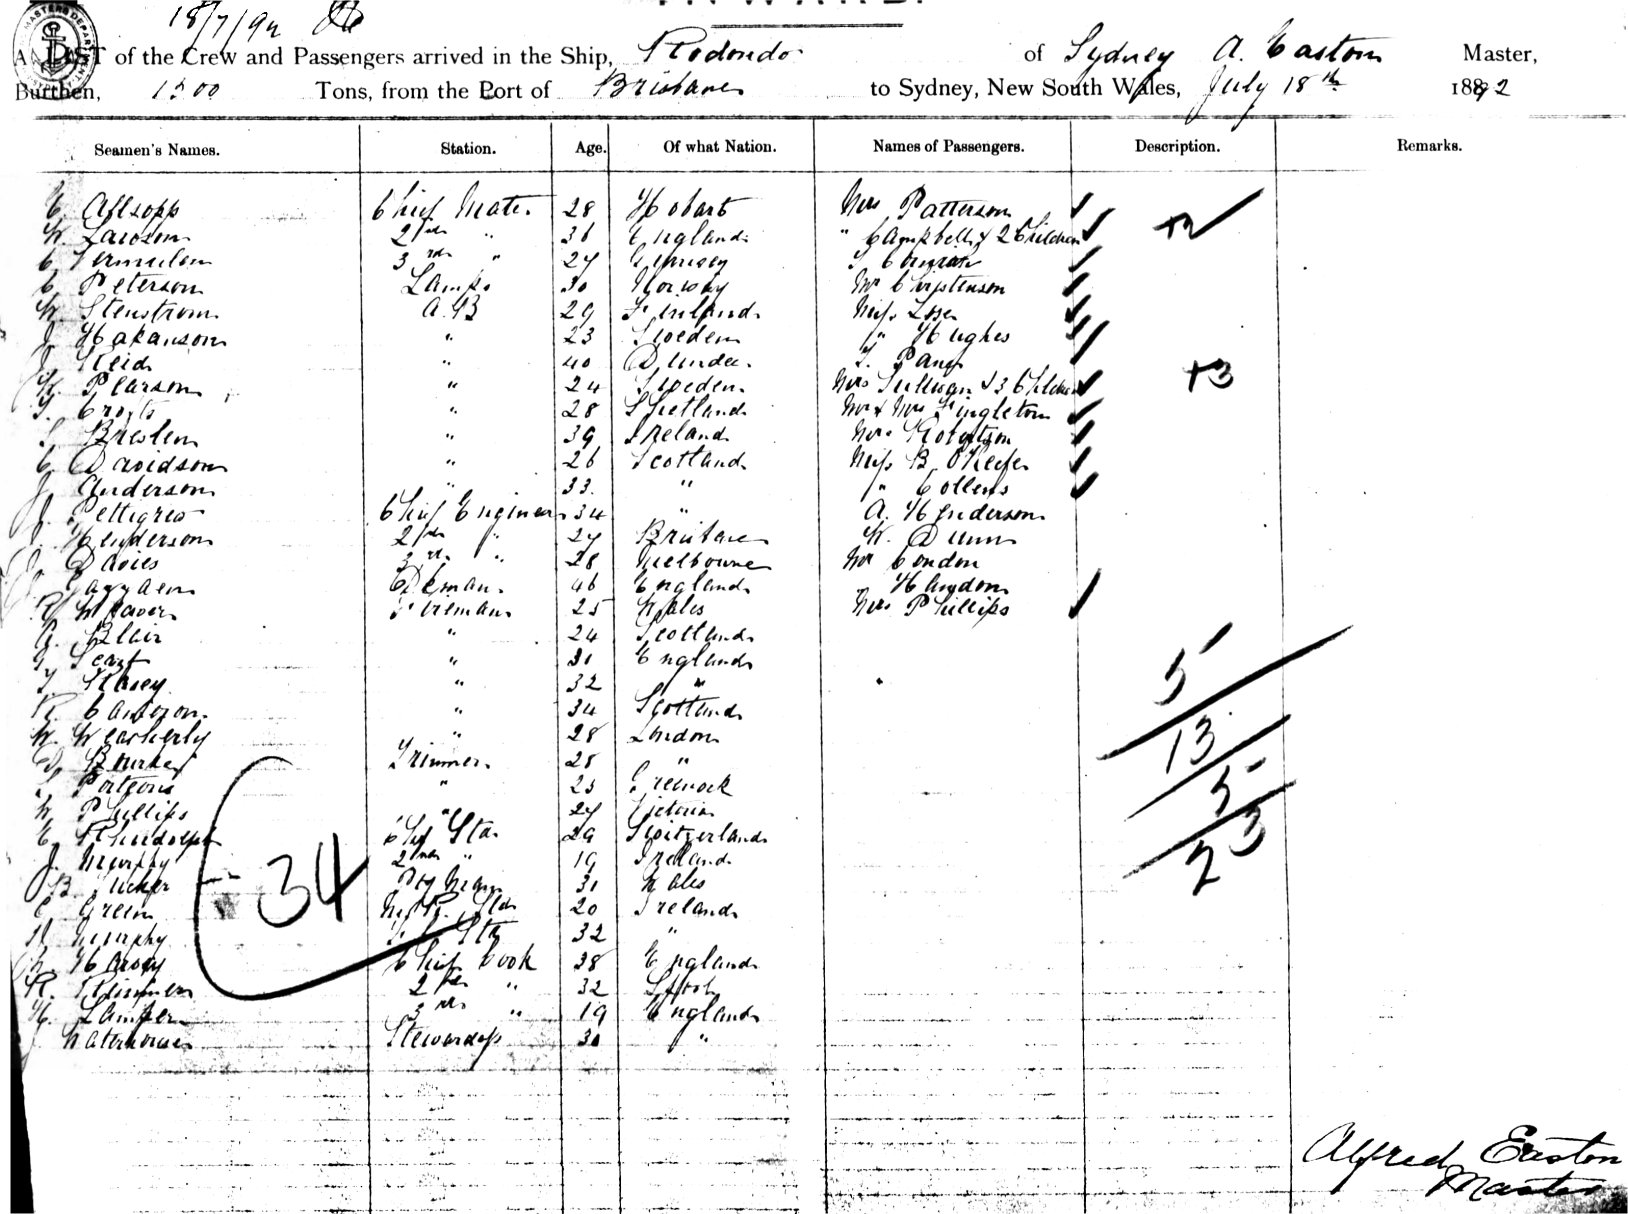 18/7/92
A LIST of the Crew and Passengers arrived in the Ship, Rodondo of Sydney A. Easton Master,
Burthen, 1500 Tons, from the Port of Brisbane to Sydney, New South Wales, July 18th 1892
Seamen's Names. Station. Age. Of what Nation. Names of Passengers. Description. Remarks.
C. Allsopp Chief Mate 28 Hobart Mrs Patterson
W. Lawson 2nd " 36 England " Campbell & 2 Children +2
C. 3rd " 27 Guernsey
C. Peterson Lamps 30 Norway Mr Christenson
W. Stenstrom A.B 29 Finland Miss
J. Hakanson " 23 Sweden " Hughes
J. Reid " 40 Dundee T. Pang
W. Pearson " 24 Sweden Mrs Sullivan & 3 Children +3
T. Crofts " 28 Shetland Mr & Mrs Singleton
S. Breslen " 39 Ireland Mrs Robertson
C. Davidson " 26 Scotland Miss B. O'Keefe
J. Anderson " 33 " " Collens
J. Pettigrew Chief Engineer 34 " A. Henderson
J. Henderson 2nd " 27 Brisbane W. Dunn
J. Davies 3rd " 28 Melbourne Mr Condon
46 England Haydon
R. Weaver Fireman 25 Wales Mrs Phillips
A. Blair " 24 Scotland
G. " 31 England
T. " 32 "
R. Cameron " 34 Scotland
W. Weatherly " 28 London
D. Bourke Trimmer 28 "
Porteous " 23 Greenock
W. Phillips " 27 Victoria
C. Rhudolph Chf Std 29 Switzerland
J. Murphy 2nd " 19 Ireland
B. Tucker Pty Man 31 Wales
C. Green 20 Ireland
Murphy 32 "
W. Hardy Chief Cook 38 England
R. 2nd " 32
H. Lamper 3rd " 19 England
Waterhouse Stewardess 30 "
34
5
13
5
23
Alfred Easton
Master